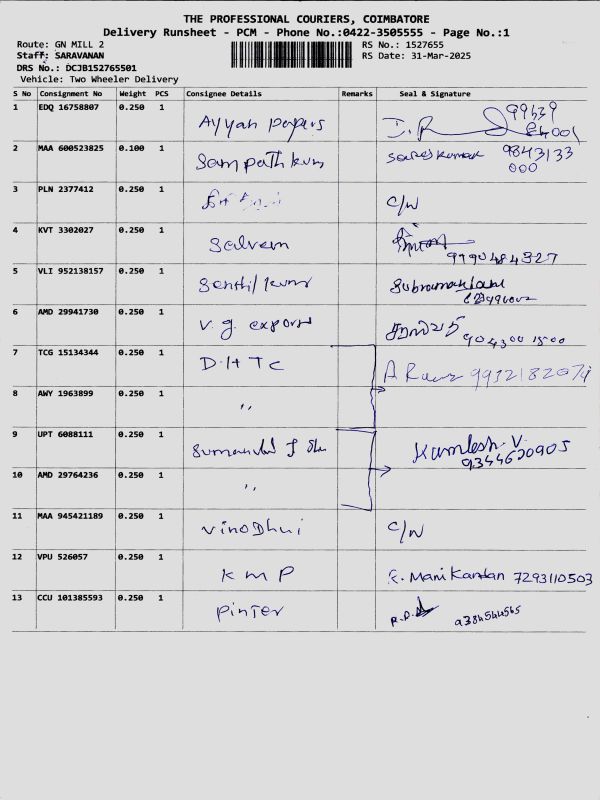 THE PROFESSIONAL COURIERS, COIMBATORE
Delivery Runsheet - PCM - Phone No.:0422-3505555 - Page No.:1
Route: GN MILL 2 RS No.: 1527655
Staff: SARAVANAN RS Date: 31-Mar-2025
DRS No.: DCJB152765501
Vehicle: Two Wheeler Delivery
S No Consignment No Weight PCS Consignee Details Remarks Seal & Signature
1 EDQ 16758807 0.250 1 Ayyan papers
2 MAA 600523825 0.100 1 Sampathkum 9843133
000
3 PLN 2377412 0.250 1 C/N
4 KVT 3302027 0.250 1 Salvam
9790484327
5 VLI 952138157 0.250 1 Senthil kumr
6 AMD 29941730 0.250 1 V. g. export
7 TCG 15134344 0.250 1 D.H T C
8 AWY 1963899 0.250 1 "
9 UPT 6088111 0.250 1 Kamlesh. V.
9344620905
10 AMD 29764236 0.250 1 "
11 MAA 945421189 0.250 1 VinoDhui C/N
12 VPU 526057 0.250 1 K M P Mani Kandan 7293110503
13 CCU 101385593 0.250 1 PinTer